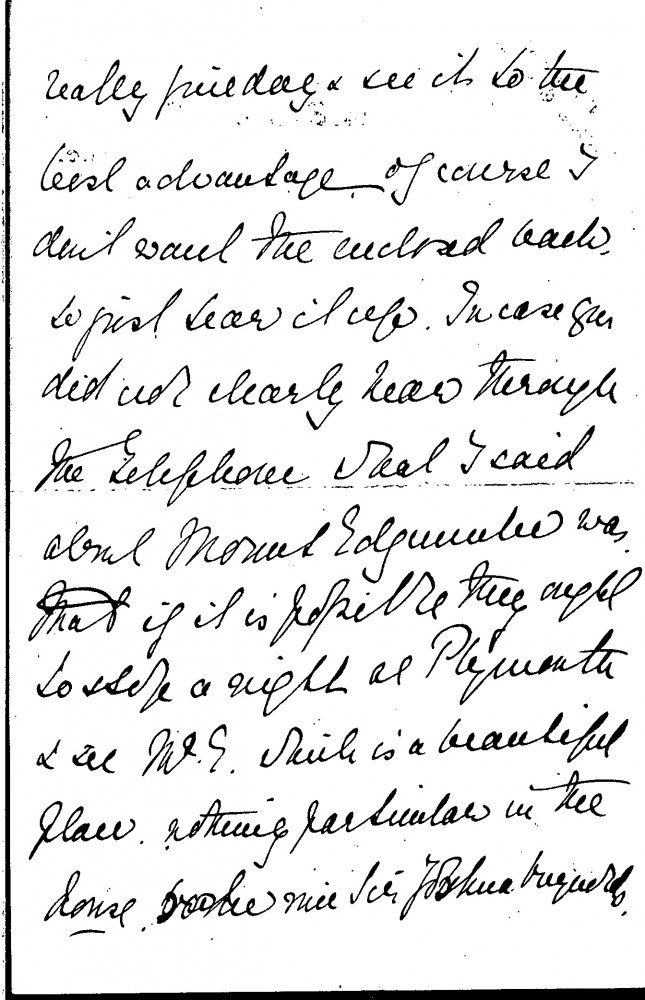 really fine day & see it to the
best advantage. Of course I
don't want the enclosed back.
so just tear it up. In case you
did not clearly hear through
the Telephone what I said
about Mount Edgcumbe was,
that if it is possible they ought
to stop a night at Plymouth
& see Mt. E. which is a beautiful
place. nothing particular in the
house. some nice Sir Joshua Reynolds.